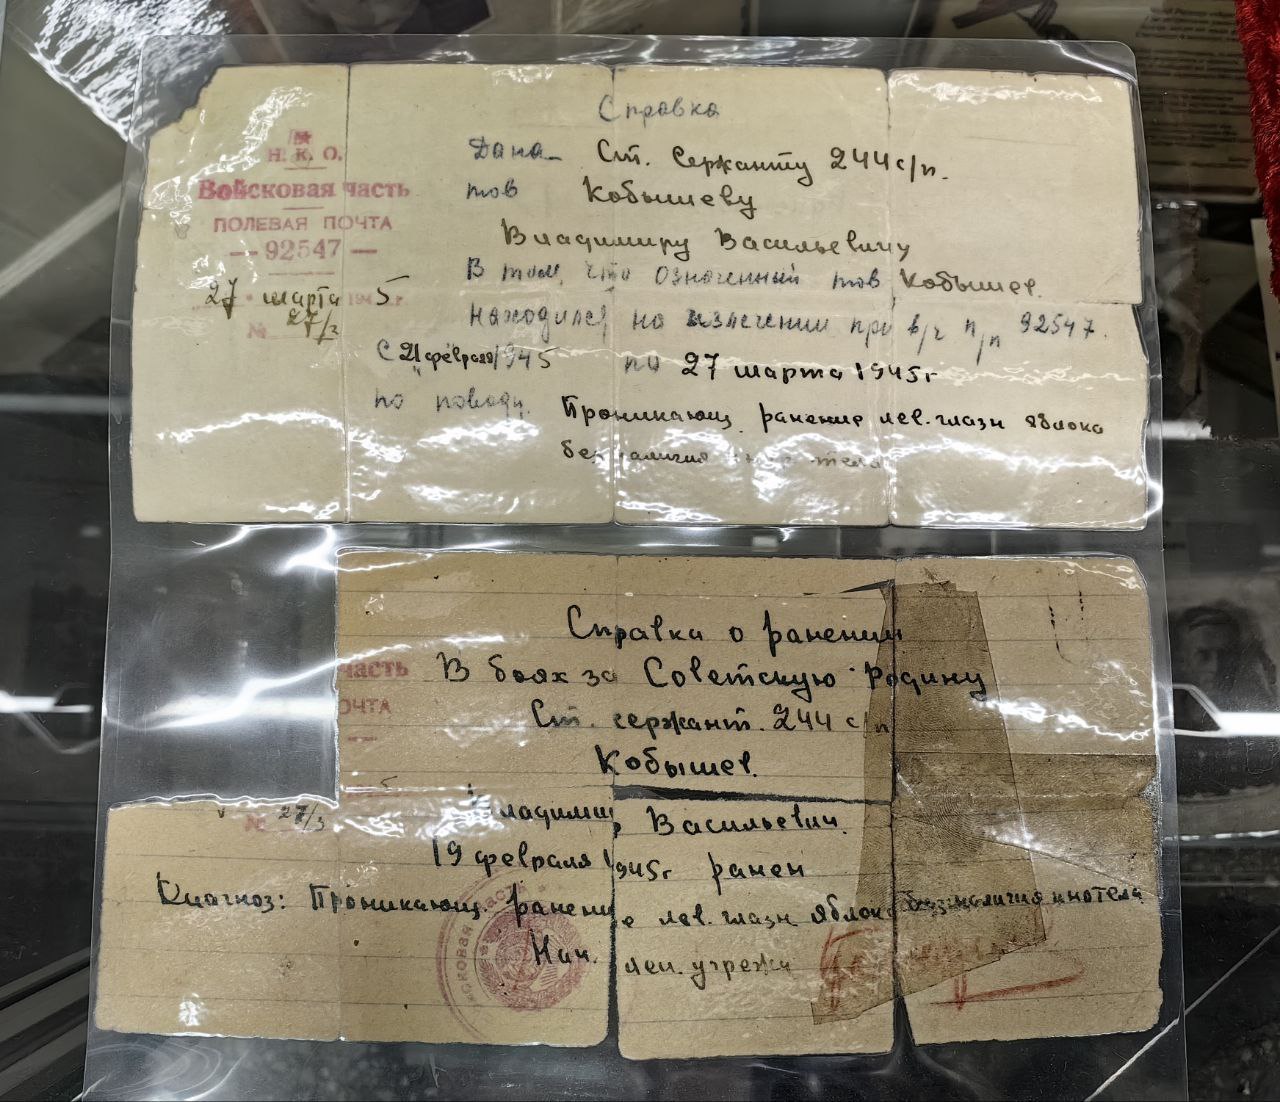 Н. К. О.
Войсковая часть
ПОЛЕВАЯ ПОЧТА
— 92547 —
27 марта 1945 г.
№ 27/3
Справка
Дана Ст. сержанту 244 с/п.
тов Кобышеву
Владимиру Васильевичу
В том, что означенный тов Кобышев.
находился на излечении при в/ч п/п 92547.
С 21 февраля 1945 по 27 марта 1945 г
по поводу. Проникающ. ранение лев. глазн яблока
без наличия тела
часть
ОЧТА
5
№ 27/3
Справка о ранении
В боях за Советскую Родину
Ст. сержант. 244 с/п
Кобышев.
Владимир Васильевич.
19 февраля 1945 г ранен
Диагноз: Проникающ. ранение лев. глазн яблока без наличия инотела
Нач. леч. учрежд